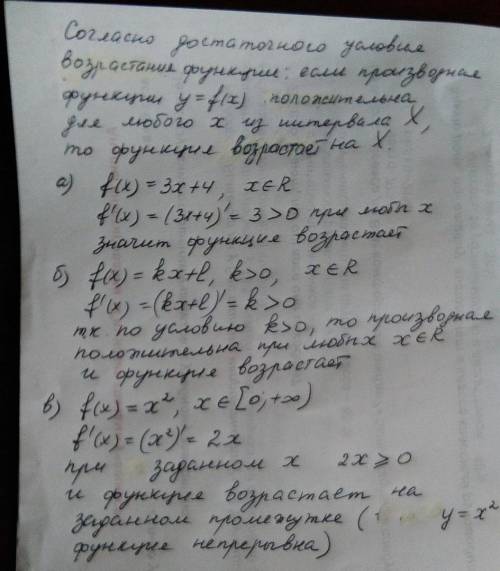 Согласно достаточного условия
возрастания функции: если производная
функции y=f(x) положительна
для любого x из интервала X,
то функция возрастает на X.
а) f(x) = 3x+4, x∈R
f'(x) = (3x+4)' = 3 > 0 при любых x
значит функция возрастает
б) f(x) = kx+l, k>0, x∈R
f'(x) = (kx+l)' = k > 0
тк по условию k>0, то производная
положительна при любых x∈R
и функция возрастает
в) f(x) = x², x∈[0;+∞)
f'(x) = (x²)' = 2x
при заданном x 2x ⩾ 0
и функция возрастает на
заданном промежутке ( y = x²
функция непрерывна)